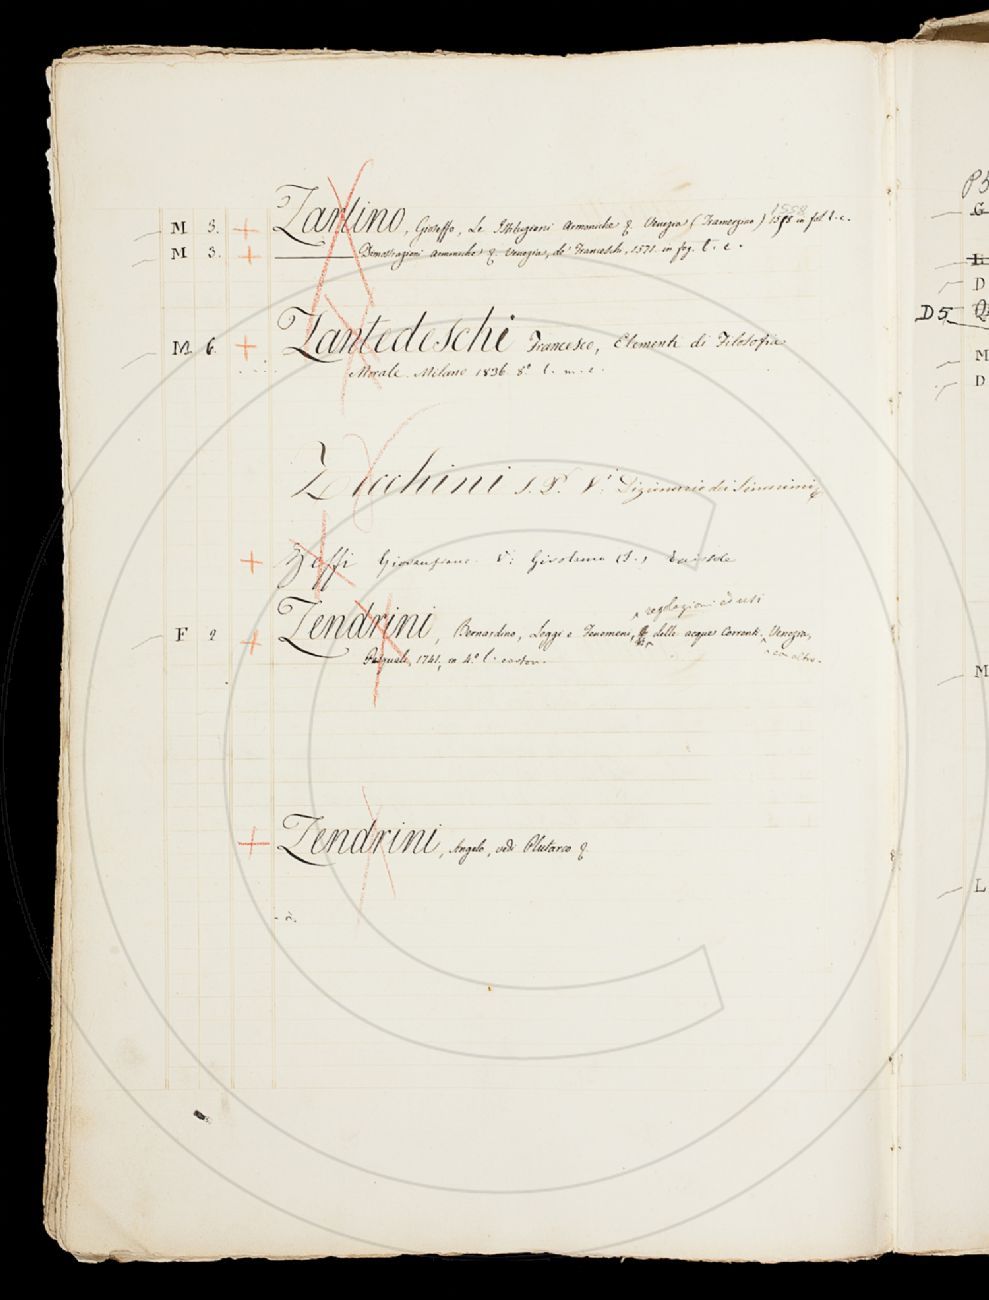 1558
M 3. + Zarlino, Gioseffo, Le Istituzioni Armoniche & Venezia (Tramezzino) in fol. l. c.
M 3. + Dimostrazioni armoniche & Venezia, de' Franceschi, 1571. in fog. l. c.
M 6. + Zantedeschi Francesco, Elementi di Filosofia
Morale. Milano 1836 8.° l. m. c.
Zecchini S. P. V. Dizionario dei Sinonimi &
+ Zeffi Giovanfranc. V:
regolazioni ed usi
F 2 + Zendrini, Bernardino, Leggi e Fenomeni, delle acque correnti. Venezia,
con altro.
Pasquali, 1741, in 4.° l. carton.
+ Zendrini, Angelo, vedi Plutarco &
D5
M
D
M
L